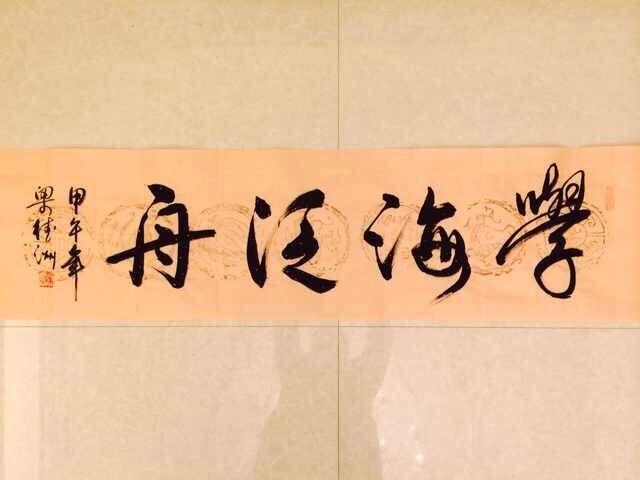 學海泛舟
甲午年
梁桂洲